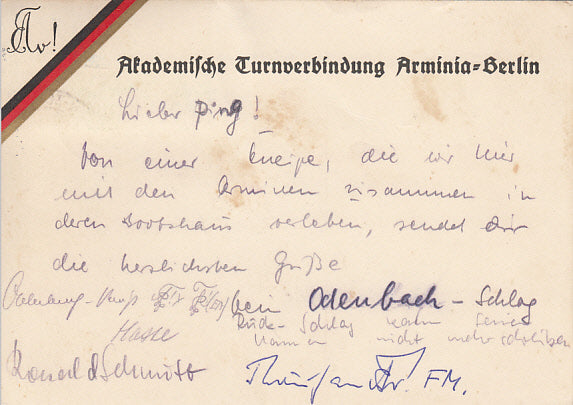 Av!
Akademische Turnverbindung Arminia-Berlin
Lieber Ping!
Von einer Kneipe, die wir hier
mit den Arminen zusammen in
deren Bootshaus verleben, sendet dir
die herzlichsten Grüße
Dein Odenbach - Schlag
Schlag kann seinen
Hasse Namen nicht mehr schreiben
Schmitt
FM.